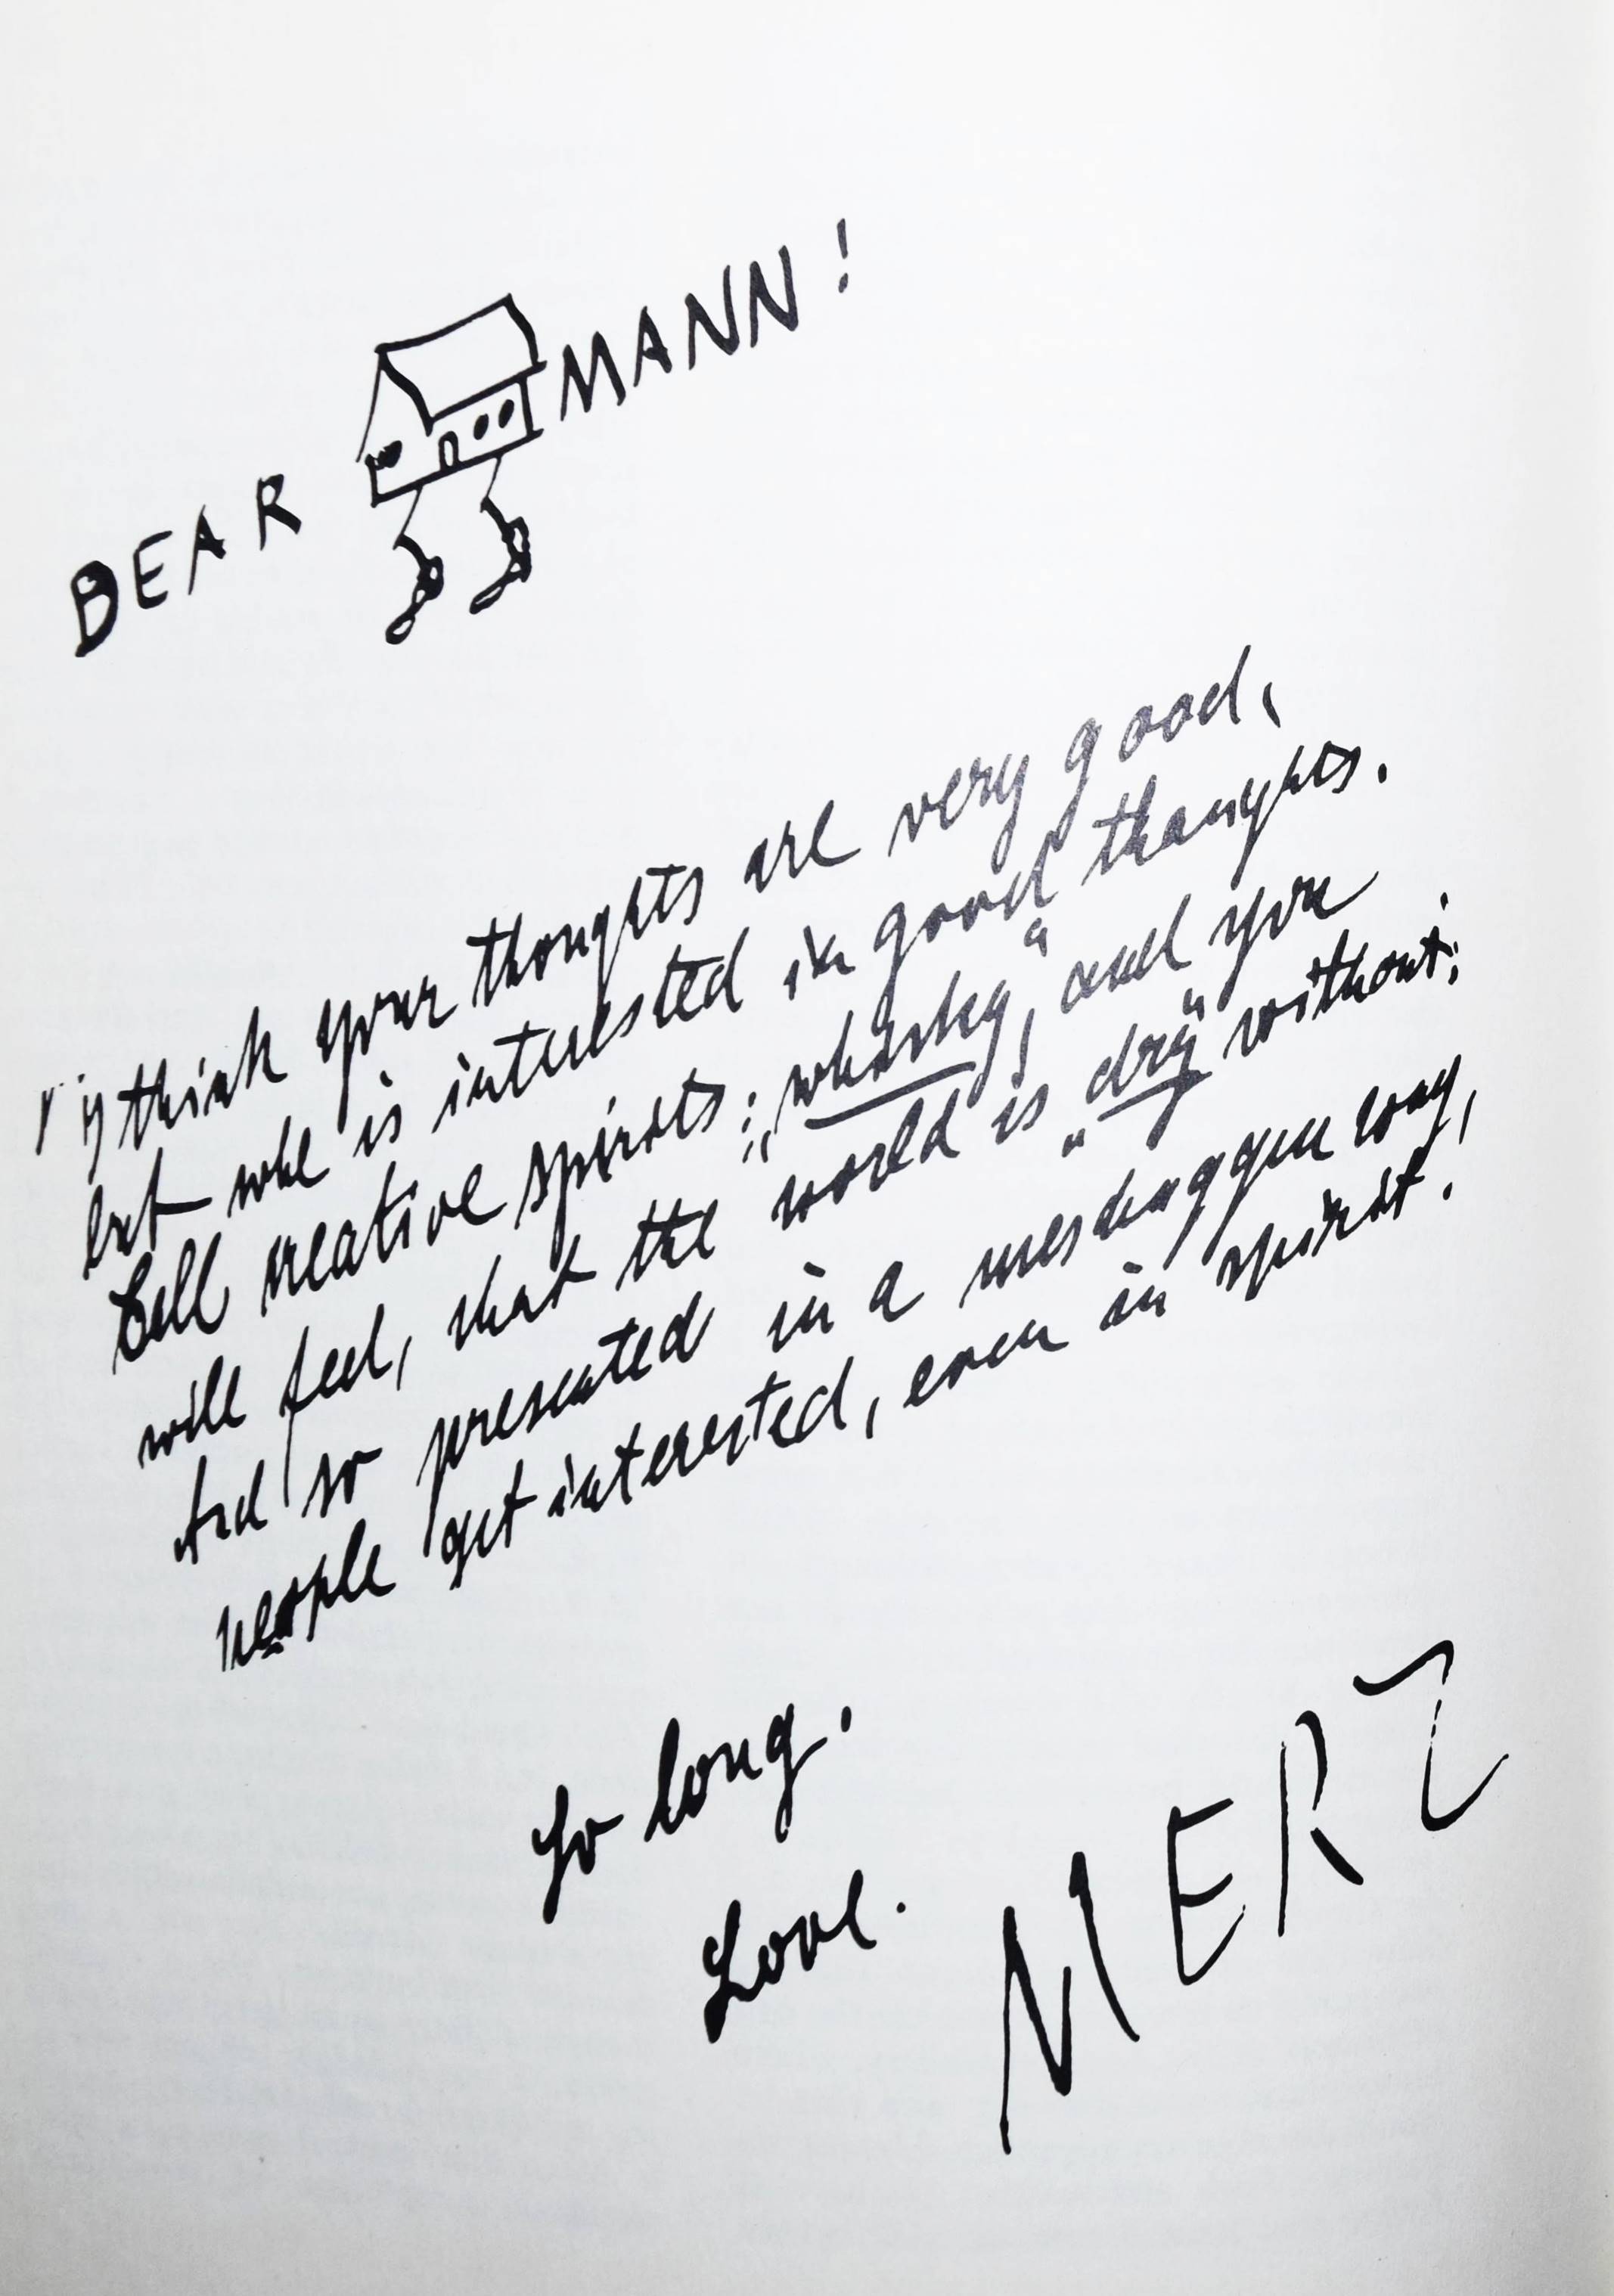 DEAR MANN!
I think your thoughts are very good,
but who is interested in good thoughts.
Call creative spirits: „whisky“, and you
will feel, that the world is „dry“ without.
And so presented in a meschuggen way,
people get interested, even in spirit.
So long.
Love.
MERZ